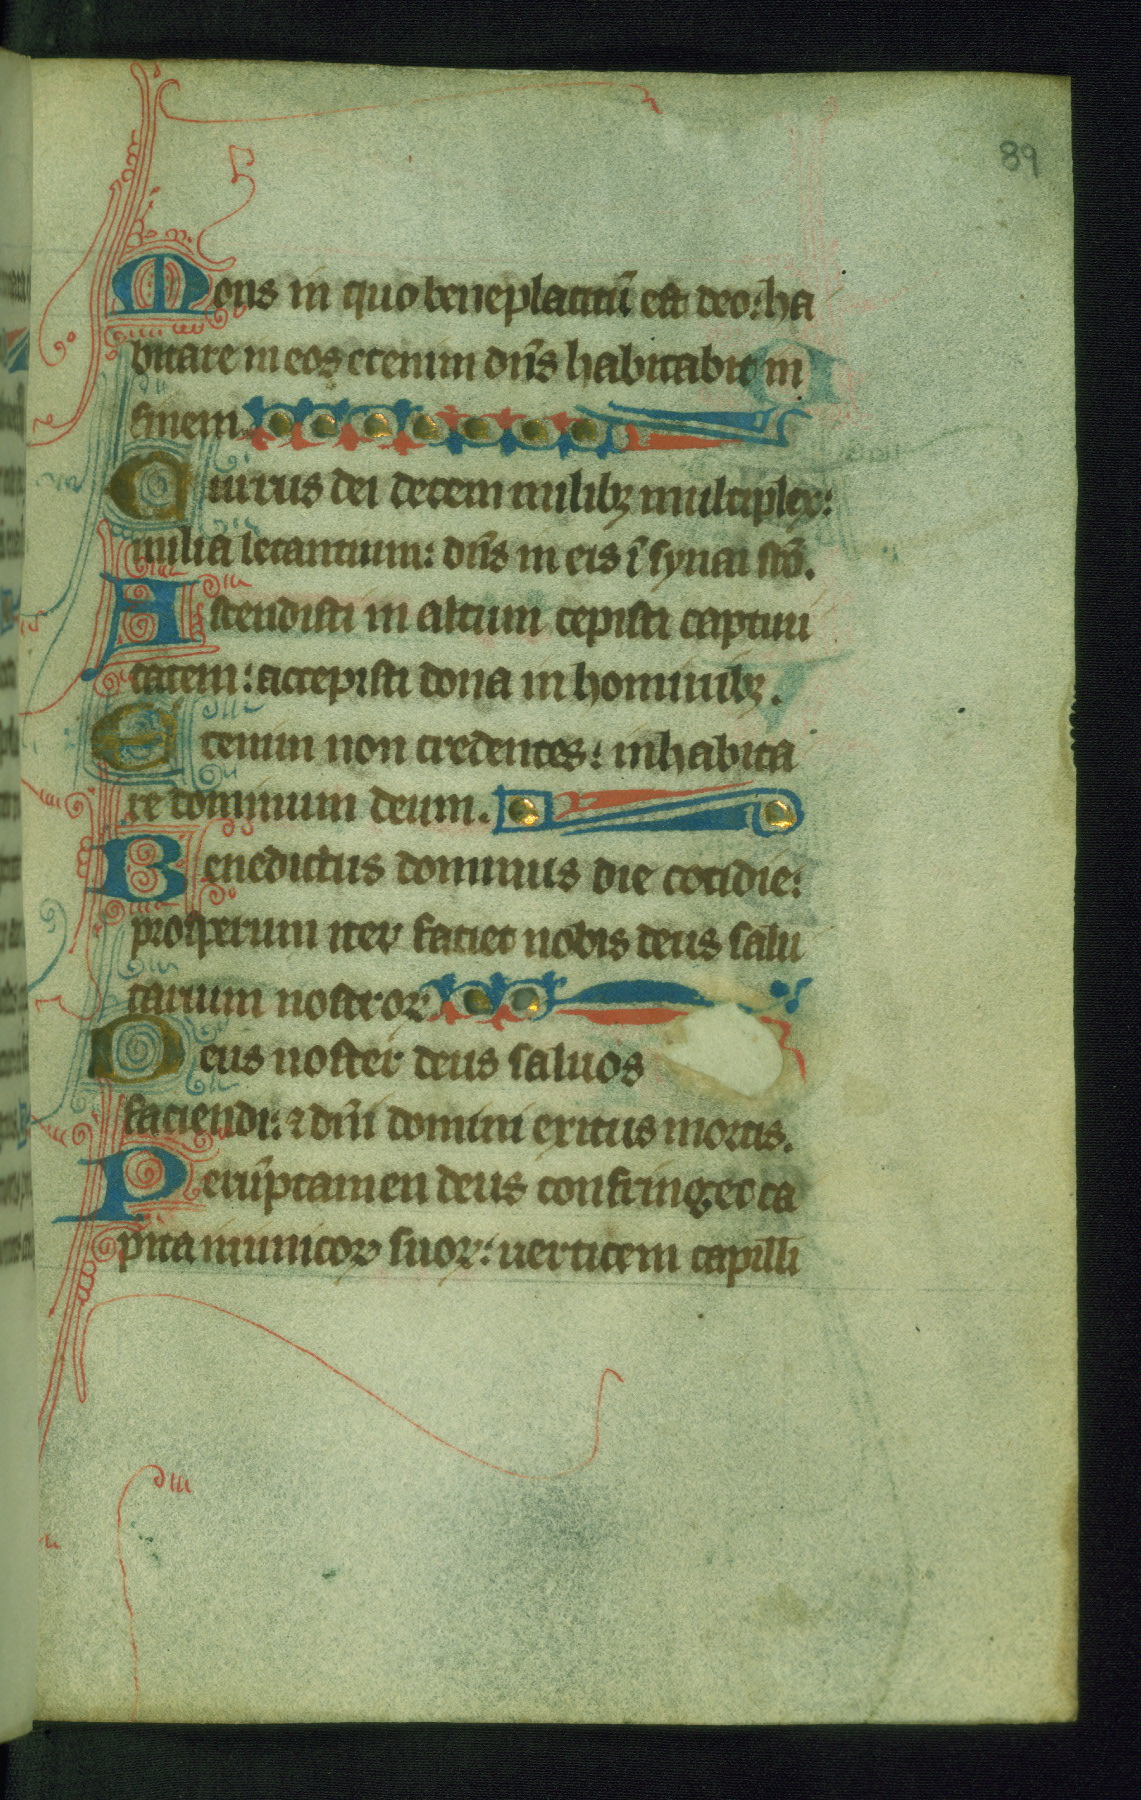 89
Mons in quo beneplacitū est deo: ha
bitare in eos etenim dn̄s habitabit in
finem
Currus dei decem milibꝫ multiplex:
milia letantium: dn̄s in eis ī synai sc̄o.
Ascendisti in altum cepisti captiui
tatem: accepisti dona in hominibꝫ.
Etenim non credentes: inhabita
re dominum deum.
Benedictus dominus die cotidie:
prosperum iter faciet nobis deus salu
tarium nostroꝝ
Deus noster deus saluos
faciendi: ⁊ dn̄i domini exitus mortis.
Perūptamen deus confringet ca
pita inimicoꝝ suoꝝ: uerticem capilli